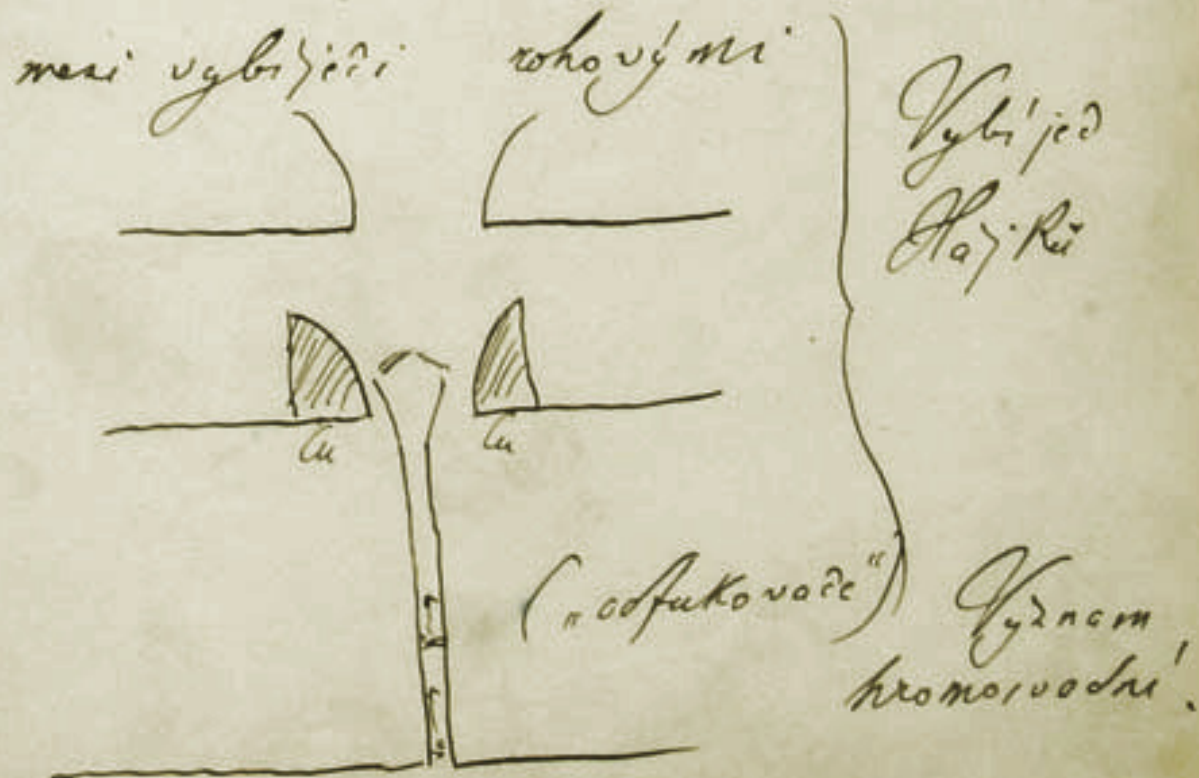 mezi vybíječi rohovými
Vybíječ
Hájků
Cu Cu
(„odfukovače“)
Význam
hromosvodní.